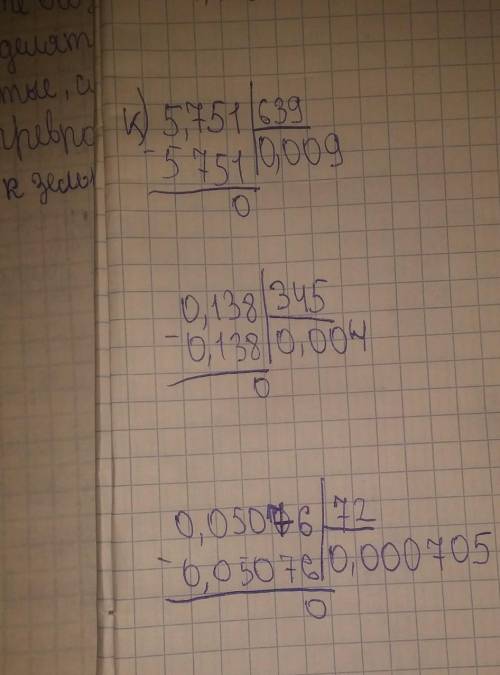 делят
тые, а
к) 5,751 | 639
- 5 751 | 0,009
0
0,138 | 345
- 0,138 | 0,004
0
0,05076 | 72
- 0,05076 | 0,000705
0